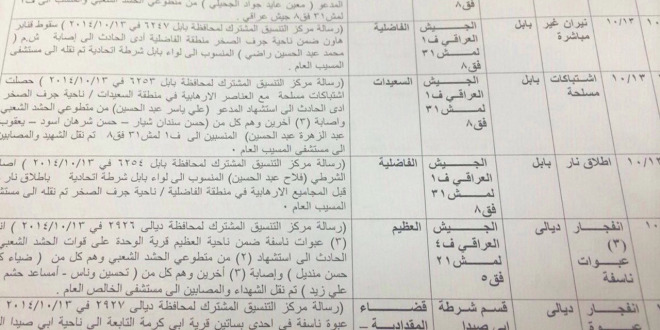 المدعو ( معين عايد جواد الجحيلي )
لمش٣١ فق٨ جيش عراقي .
فق٨
١٠/١٣ نيران غير مباشرة بابل الفاضلية الجيش العراقي ف١ لمش ٣١ فق٨
(رسالة مركز التنسيق المشترك لمحافظة بابل ٦٢٤٧ في ٢٠١٤/١٠/١٣) سقوط قنابر
هاون ضمن ناحية جرف الصخر منطقة الفاضلية ادى الحادث الى إصابة ش.م (
محمد عبد الحسين راضي ) المنسوب الى لواء بابل شرطة اتحادية تم نقله الى مستشفى
المسيب العام .
١٠/١٣ اشتباكات مسلحة بابل السعيدات الجيش العراقي ف١ لمش ٣١ فق٨
(رسالة مركز التنسيق المشترك لمحافظة بابل ٦٢٥٣ في ٢٠١٤/١٠/١٣) حصلت
اشتباكات مسلحة مع العناصر الارهابية في منطقة السعيدات / ناحية جرف الصخر
ادى الحادث الى استشهاد المدعو (علي ياسر عبد الحسين) من متطوعي الحشد الشعبي
واصابة (٣) أخرين وهم كل من (حسن سندان شيار – حسن شرهان اسود – يعقوب
عبد الزهرة عبد الحسين) المنسبين الى ف١ لمش٣١ فق٨ تم نقل الشهيد والمصابين
الى مستشفى المسيب العام .
١٠/١٣ اطلاق نار بابل الفاضلية الجيش العراقي ف١ لمش ٣١ فق٨
(رسالة مركز التنسيق المشترك لمحافظة بابل ٦٢٥٤ في ٢٠١٤/١٠/١٣)
الشرطي (فلاح عبد الحسين) المنسوب الى لواء بابل شرطة اتحادية باطلاق نار
قبل المجاميع الارهابية في منطقة الفاضلية / ناحية جرف الصخر تم نقله الى
المسيب العام .
انفجار (٣) عبوات ناسفة ديالى العظيم الجيش العراقي ف٤ لمش٢١ فق٥
(رسالة مركز التنسيق المشترك لمحافظة ديالى ٢٩٢٦ في ٢٠١٤/١٠/١٣)
(٣) عبوات ناسفة ضمن ناحية العظيم قرية الوحدة على قوات الحشد الشعبي
الحادث الى استشهاد (٢) من متطوعي الحشد الشعبي وهم كل من (ضياء
حسن منديل ) وإصابة (٣) أخرين وهم كل من ( تحسين وناس - امساعد حشم
علي زيد ) تم نقل الشهداء والمصابين الى مستشفى الخالص العام .
انفجار عبوة ديالى قضاء المقدادية – قسم شرطة ابي صيدا
(رسالة مركز التنسيق المشترك لمحافظة ديالى ٢٩٢٧ في ٢٠١٤/١٠/١٣)
عبوة ناسفة في احدى بساتين قرية ابي كرمة التابعة الى ناحية ابي صيدا